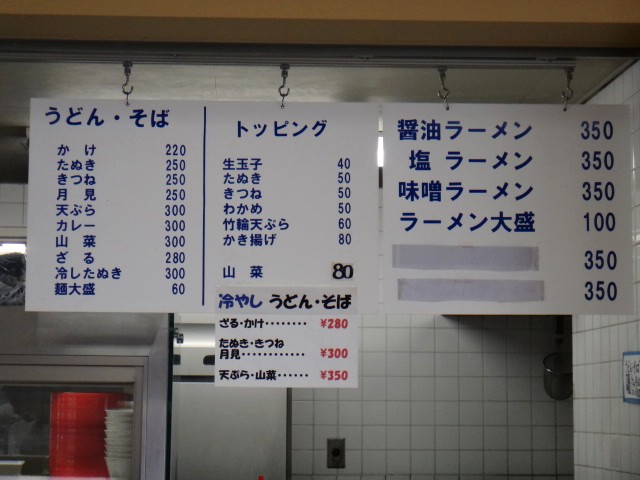 うどん・そば
かけ 220
たぬき 250
きつね 250
月見 250
天ぷら 300
カレー 300
山菜 300
ざる 280
冷したぬき 300
麺大盛 60
トッピング
生玉子 40
たぬき 50
きつね 50
わかめ 50
竹輪天ぷら 60
かき揚げ 80
山菜 80
冷やし うどん・そば
ざる・かけ・・・・・・・・ ¥280
たぬき・きつね
月見・・・・・・・・・・・・ ¥300
天ぷら・山菜・・・・・・ ¥350
醤油ラーメン 350
塩 ラーメン 350
味噌ラーメン 350
ラーメン大盛 100
350
350